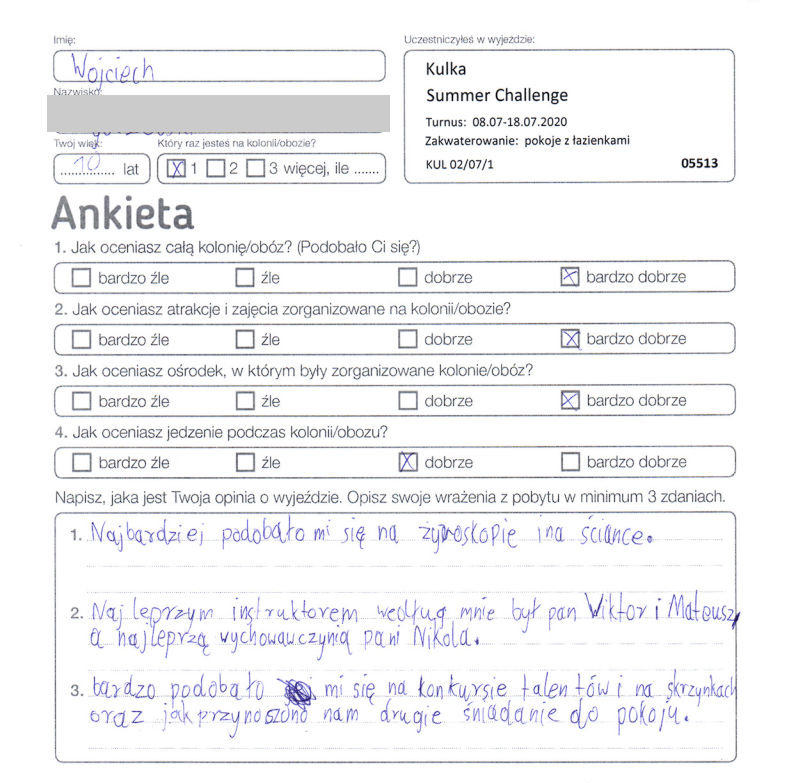 Imię:
Wojciech
Nazwisko:
Twój wiek:
10 lat
Który raz jesteś na kolonii/obozie?
1 2 3 więcej, ile .......
Uczestniczyłeś w wyjeździe:
Kulka
Summer Challenge
Turnus: 08.07-18.07.2020
Zakwaterowanie: pokoje z łazienkami
KUL 02/07/1 05513
Ankieta
1. Jak oceniasz całą kolonię/obóz? (Podobało Ci się?)
bardzo źle źle dobrze bardzo dobrze
2. Jak oceniasz atrakcje i zajęcia zorganizowane na kolonii/obozie?
bardzo źle źle dobrze bardzo dobrze
3. Jak oceniasz ośrodek, w którym były zorganizowane kolonie/obóz?
bardzo źle źle dobrze bardzo dobrze
4. Jak oceniasz jedzenie podczas kolonii/obozu?
bardzo źle źle dobrze bardzo dobrze
Napisz, jaka jest Twoja opinia o wyjeździe. Opisz swoje wrażenia z pobytu w minimum 3 zdaniach.
1. Najbardziej podobało mi się na żyroskopie i na ściance.
2. Najleprzym instruktorem według mnie był pan Wiktor i Mateusz,
a najleprzą wychowawczynią pani Nikola.
3. bardzo podobało mi się na konkursie talentów i na skrzynkach
oraz jak przynoszono nam drugie śniadanie do pokoju.